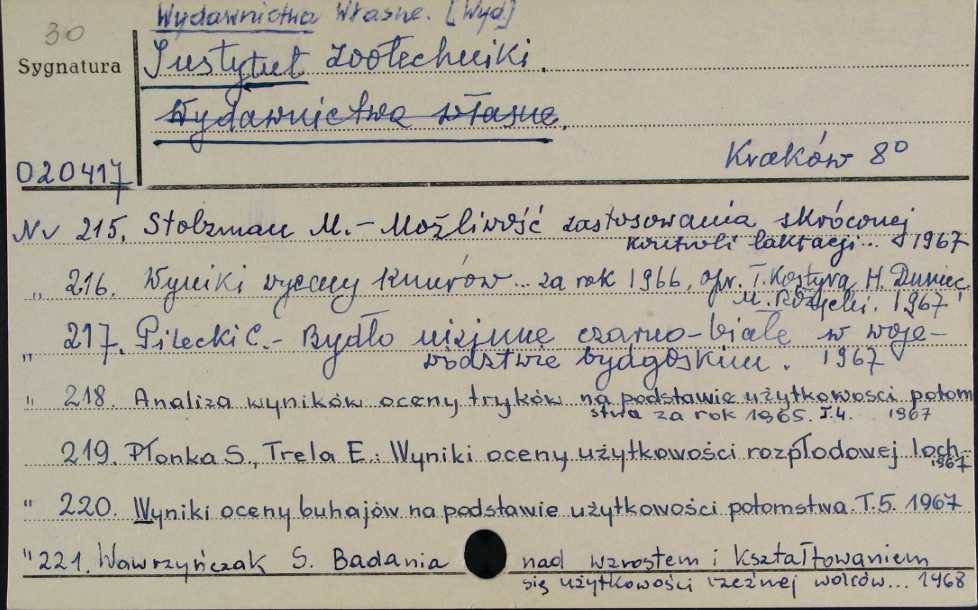 30
Wydawnictwa Własne. [Wyd]
Sygnatura
Instytut Zootechniki.
Wydawnictwa własne.
Kraków 8°
020417
Nr 215. Stolzman M. - Możliwość zastosowania skróconej
kontroli laktacji... 1967
" 216. Wyniki wyceny knurów... za rok 1966, opr. T. Kostyra, H. Duniec,
M. Różycki. 1967
" 217. Pilecki C. - Bydło nizinne czarno-białe w woje-
wództwie bydgoskim. 1967
" 218. Analiza wyników oceny tryków na podstawie użytkowości potom
stwa za rok 1965. T.4. 1967
219. Płonka S., Trela E.: Wyniki oceny użytkowości rozpłodowej loch-
1967
" 220. Wyniki oceny buhajów na podstawie użytkowości potomstwa. T.5. 1967.
" 221. Wawrzyńczak S. Badania nad wzrostem i kształtowaniem
się użytkowości rzeźnej wolców... 1968